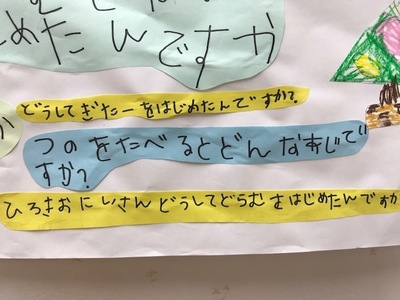 めたんですか
どうしてぎたーをはじめたんですか?
か
つのをたべるとどんなあじで
すか?
ひろきおにいさんどうしてどらむをはじめたんですか